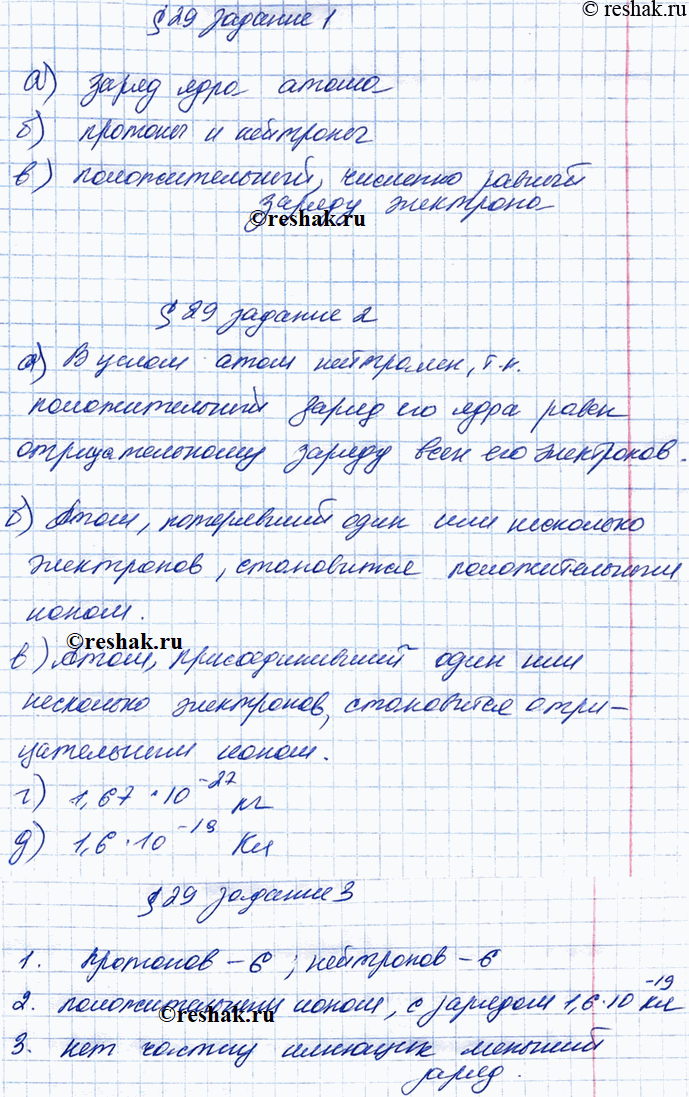 © reshak.ru
§ 29 задание 1
а) заряд ядра атома
б) протоны и нейтроны
в) положительный, численно равный
заряду электрона
© reshak.ru
§ 29 задание 2
а) В целом атом нейтрален, т.к.
положительный заряд его ядра равен
отрицательному заряду всех его электронов.
б) Атом, потерявший один или несколько
электронов, становится положительным
ионом.
© reshak.ru
в) Атом, присоединивший один или
несколько электронов, становится отри-
цательным ионом.
г) 1,67 · 10⁻²⁷ кг
д) 1,6 · 10⁻¹⁹ Кл
§ 29 задание 3
1. Протонов – 6; нейтронов – 6
2. положительным ионом, с зарядом 1,6·10⁻¹⁹ Кл
© reshak.ru
3. нет частиц имеющих меньший
заряд.